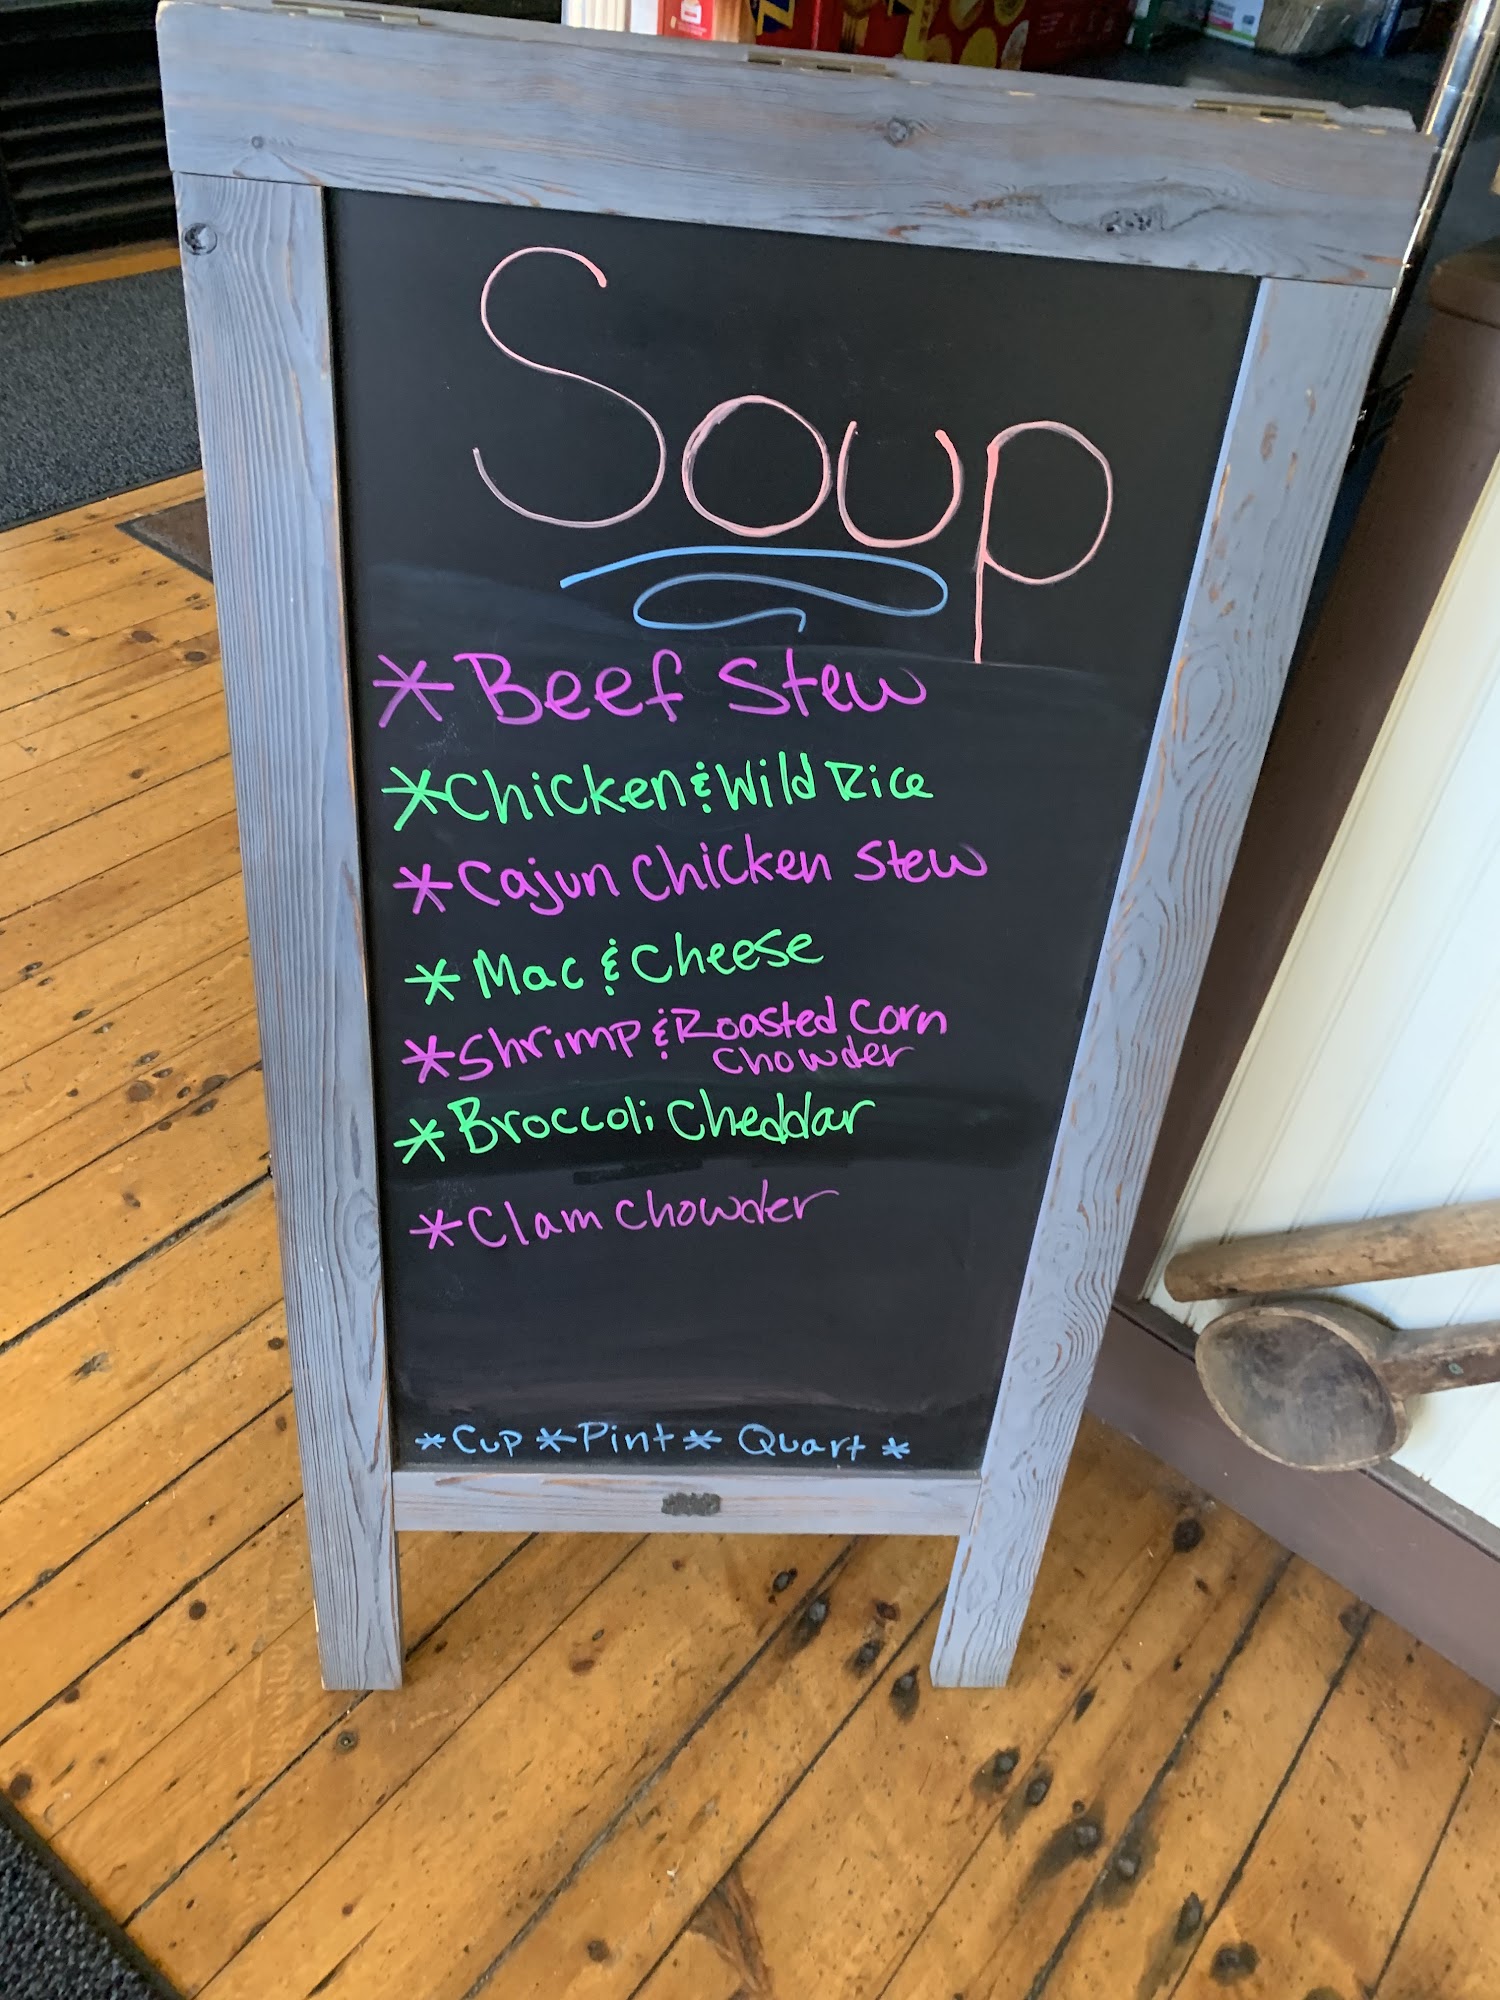 Soup
* Beef Stew
* Chicken & Wild Rice
* Cajun Chicken Stew
* Mac & Cheese
* Shrimp & Roasted Corn
Chowder
* Broccoli Cheddar
* Clam Chowder
* Cup * Pint * Quart *